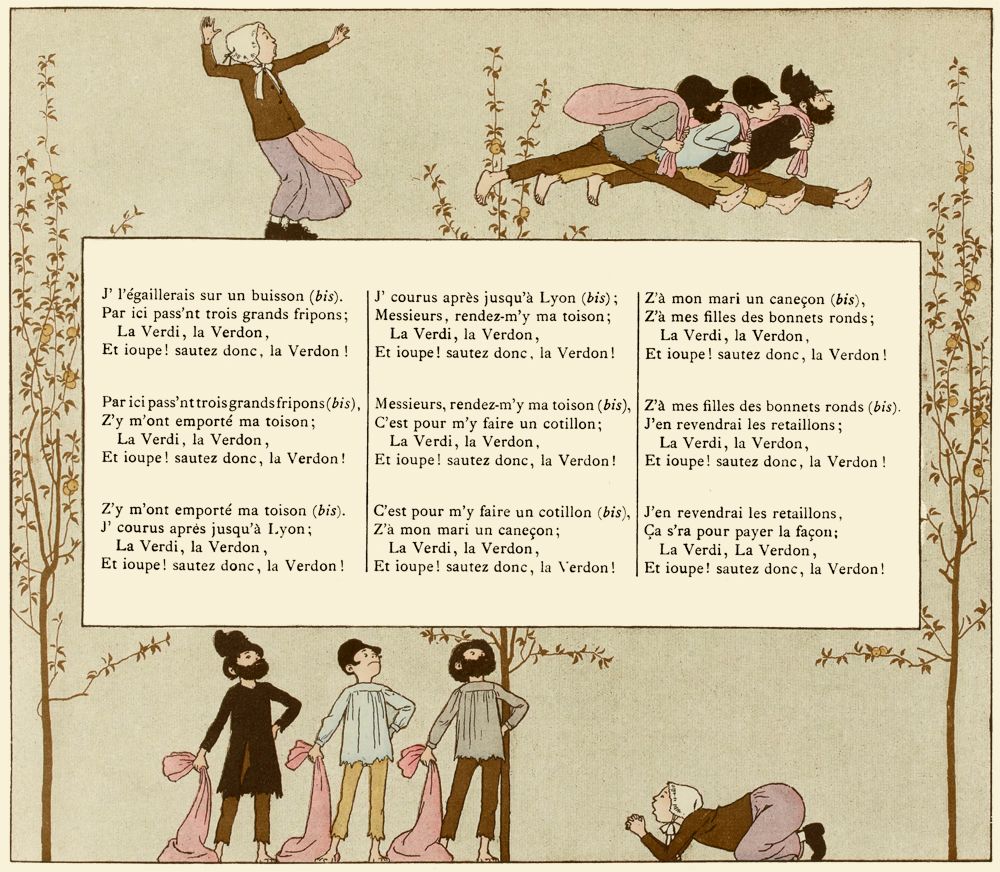 J' l'égaillerais sur un buisson (bis).
Par ici pass'nt trois grands fripons;
La Verdi, la Verdon,
Et ioupe! sautez donc, la Verdon!
Par ici pass'nt trois grands fripons (bis),
Z'y m'ont emporté ma toison;
La Verdi, la Verdon,
Et ioupe! sautez donc, la Verdon!
Z'y m'ont emporté ma toison (bis).
J' courus après jusqu'à Lyon;
La Verdi, la Verdon,
Et ioupe! sautez donc, la Verdon!
J' courus après jusqu'à Lyon (bis);
Messieurs, rendez-m'y ma toison;
La Verdi, la Verdon,
Et ioupe! sautez donc, la Verdon!
Messieurs, rendez-m'y ma toison (bis),
C'est pour m'y faire un cotillon;
La Verdi, la Verdon,
Et ioupe! sautez donc, la Verdon!
C'est pour m'y faire un cotillon (bis),
Z'à mon mari un caneçon;
La Verdi, la Verdon,
Et ioupe! sautez donc, la Verdon!
Z'à mon mari un caneçon (bis),
Z'à mes filles des bonnets ronds;
La Verdi, la Verdon,
Et ioupe! sautez donc, la Verdon!
Z'à mes filles des bonnets ronds (bis).
J'en revendrai les retaillons;
La Verdi, la Verdon,
Et ioupe! sautez donc, la Verdon!
J'en revendrai les retaillons,
Ça s'ra pour payer la façon;
La Verdi, La Verdon,
Et ioupe! sautez donc, la Verdon!